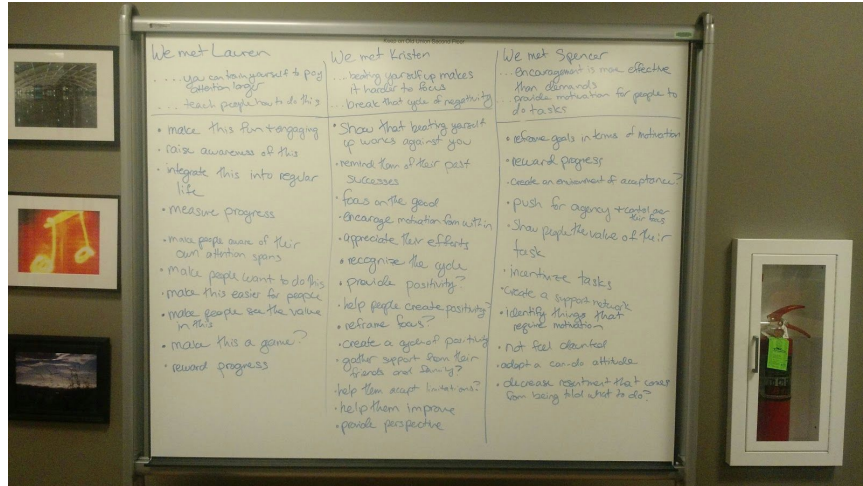 Keep on Old Union Second Floor
We met Lauren
. ...you can train yourself to pay
attention longer
. ... teach people how to do this
• make this fun + engaging
• raise awareness of this
• integrate this into regular
life
• measure progress
• make people aware of their
own attention spans
• make people want to do this
• make this easier for people
• make people see the value
in this
• make this a game?
• reward progress
We met Kristen
... beating yourself up makes
it harder to focus
...break that cycle of negativity
• Show that beating yourself
up works against you
• remind them of their past
successes
• focus on the good
• encourage motivation from within
• appreciate their efforts
• recognize the cycle
• provide positivity?
• help people create positivity?
• reframe focus?
• create a cycle of positivity
• gather support from their
friends and family?
• help them accept limitations?
• help them improve
• provide perspective
We met Spencer
... encouragement is more effective
than demands
... provide motivation for people to
do tasks
• reframe goals in terms of motivation
• reward progress
• create an environment of acceptance?
• push for agency + control over
their lives
• Show people the value of their
task
• incentivize tasks
• create a support network
• identify things that
require motivation
• not feel daunted
• adopt a can-do attitude
• decrease resentment that comes
from being told what to do?